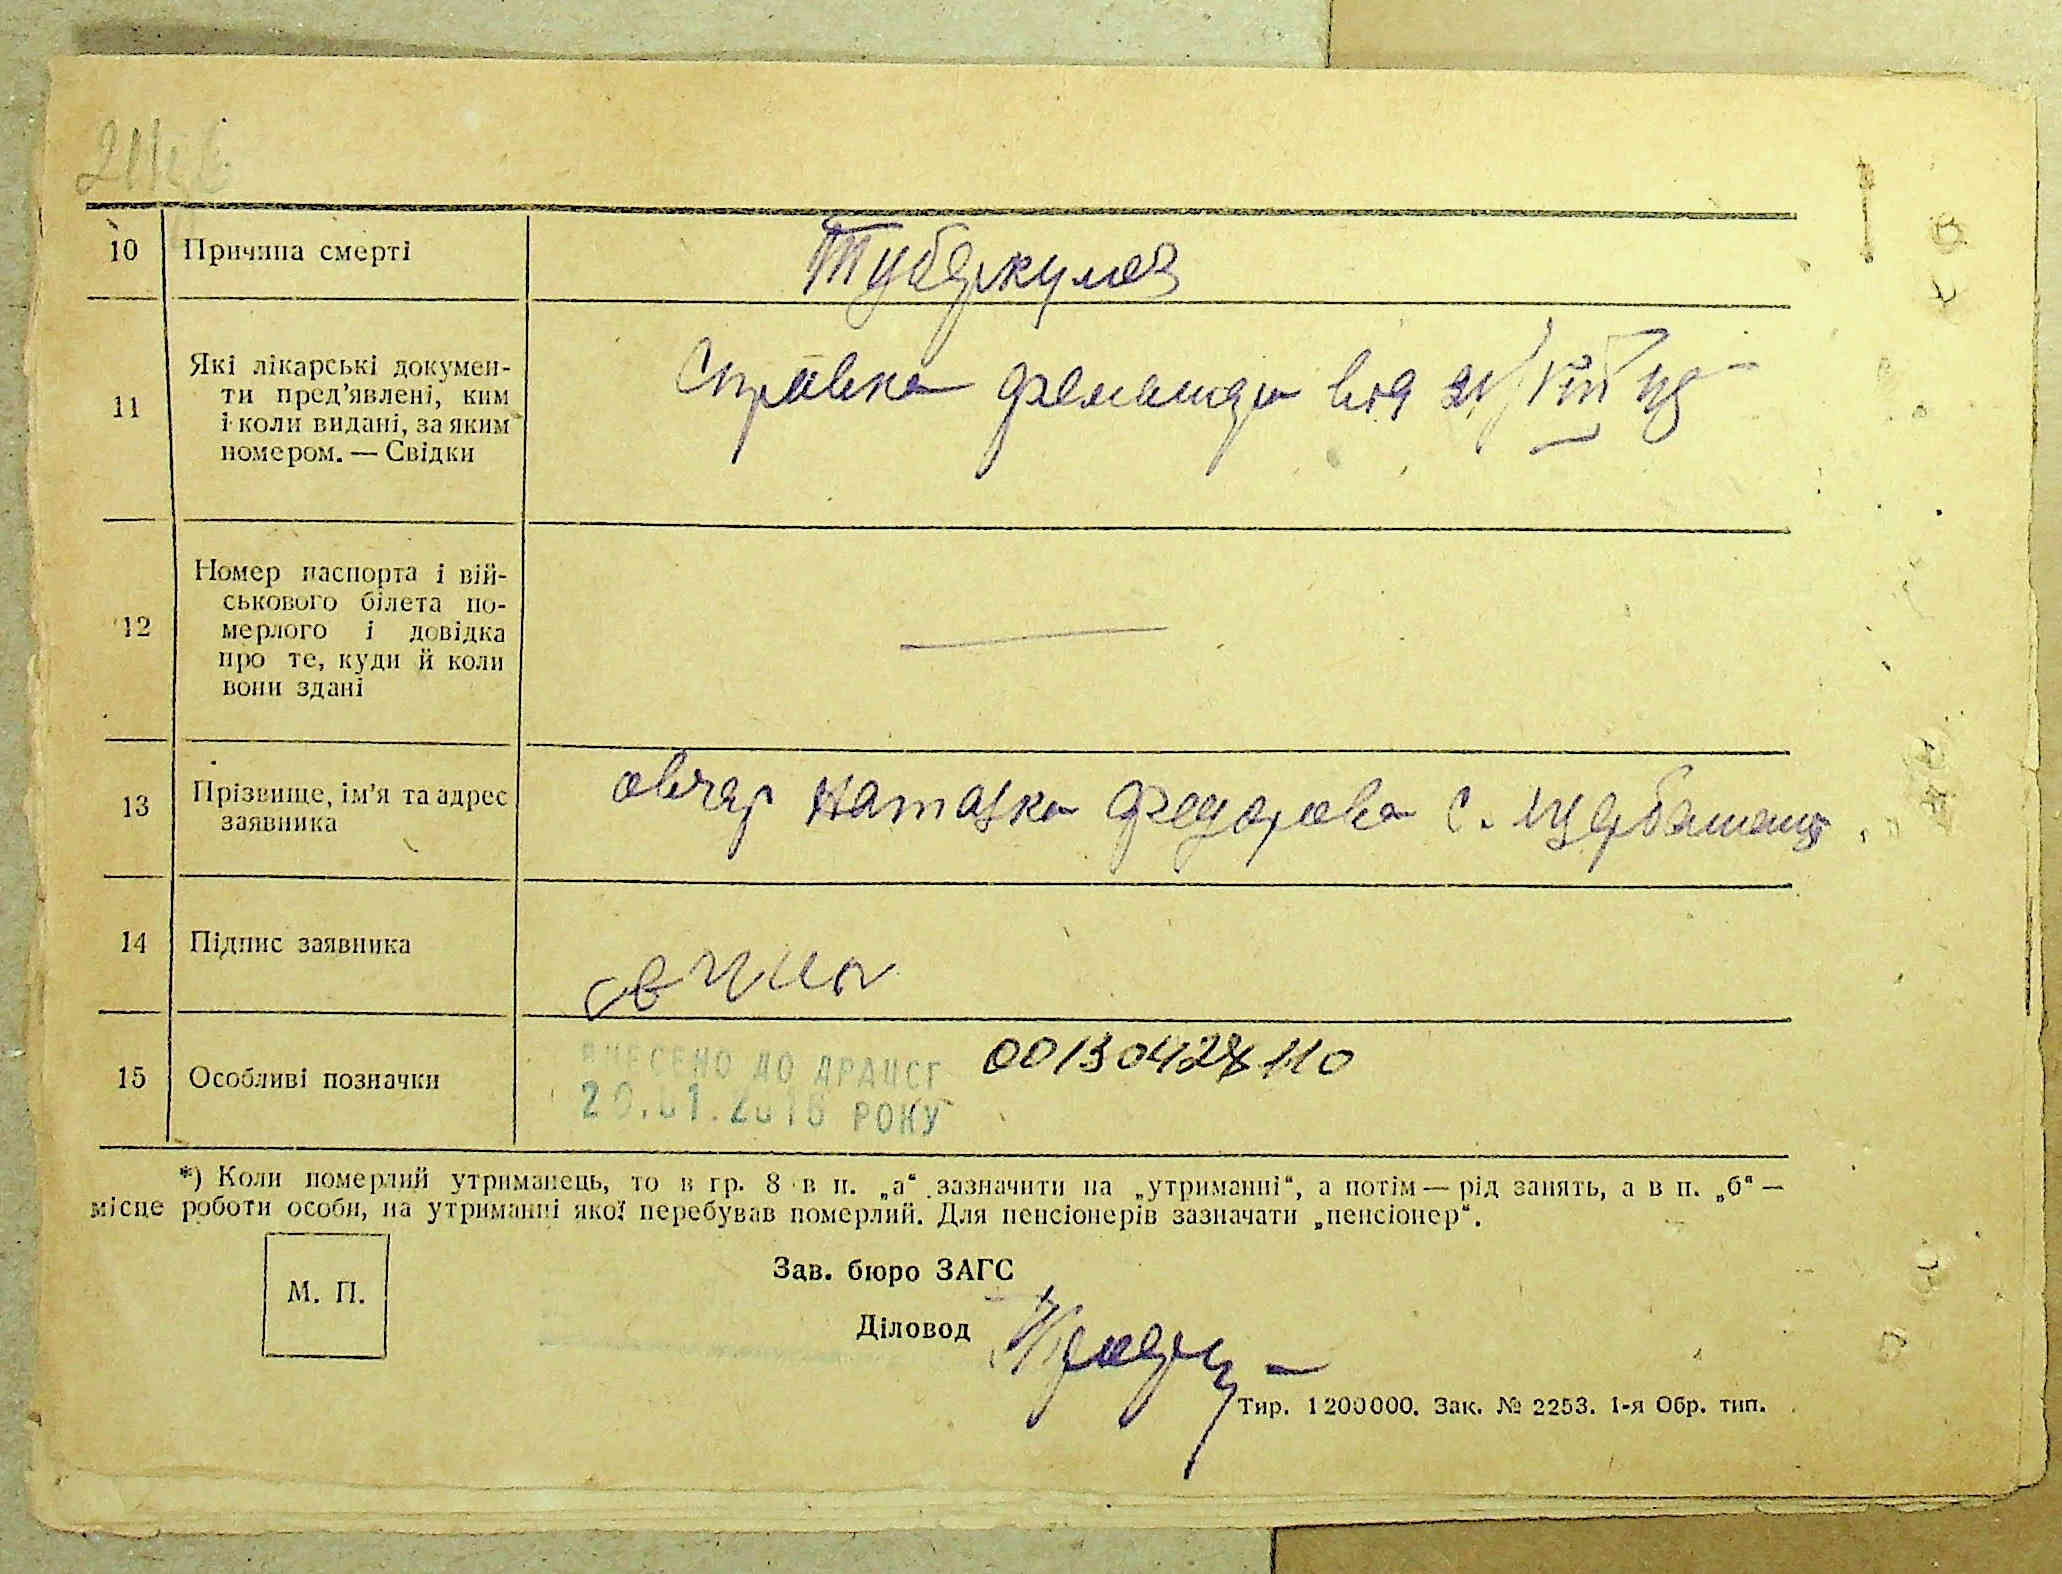 10 Причина смерті Туберкульоз
11 Які лікарські докумен-
ти пред'явлені, ким
і коли видані, за яким
номером. — Свідки
Справка від 21/VIII
12 Номер паспорта і вій-
ськового білета по-
мерлого і довідка
про те, куди й коли
вони здані
—
13 Прізвище, ім'я та адрес
заявника
Овчар Наталка Федорова с. Щербашенц
14 Підпис заявника
15 Особливі позначки
ВНЕСЕНО ДО ДРАЦСГ 00130428110
РОКУ
*) Коли померлий утриманець, то в гр. 8 в п. „а“ зазначити на „утриманні“, а потім — рід занять, а в п. „б“ —
місце роботи особи, на утриманні якої перебував померлий. Для пенсіонерів зазначати „пенсіонер“.
М. П.
Зав. бюро ЗАГС
Діловод
Тир. 1200000. Зак. № 2253. 1-я Обр. тип.